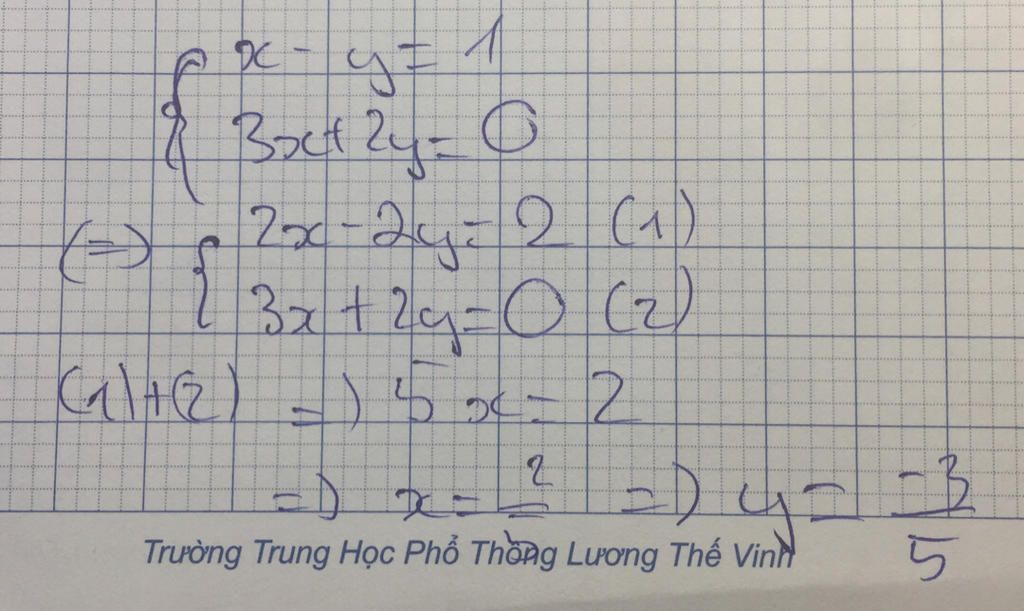 { x - y = 1
3x + 2y = 0
(=) { 2x - 2y = 2 (1)
3x + 2y = 0 (2)
(1) + (2) =) 5x = 2
=) x = 2/5 =) y = -3/5
Trường Trung Học Phổ Thông Lương Thế Vinh